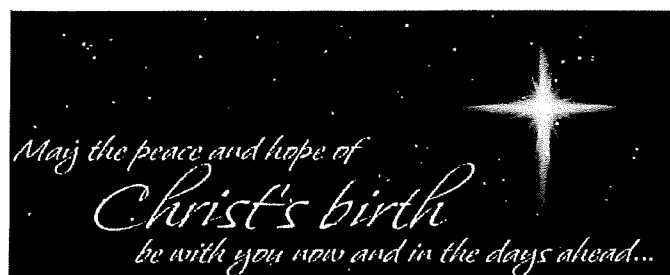 May the peace and hope of
Christ's birth
be with you now and in the days ahead...